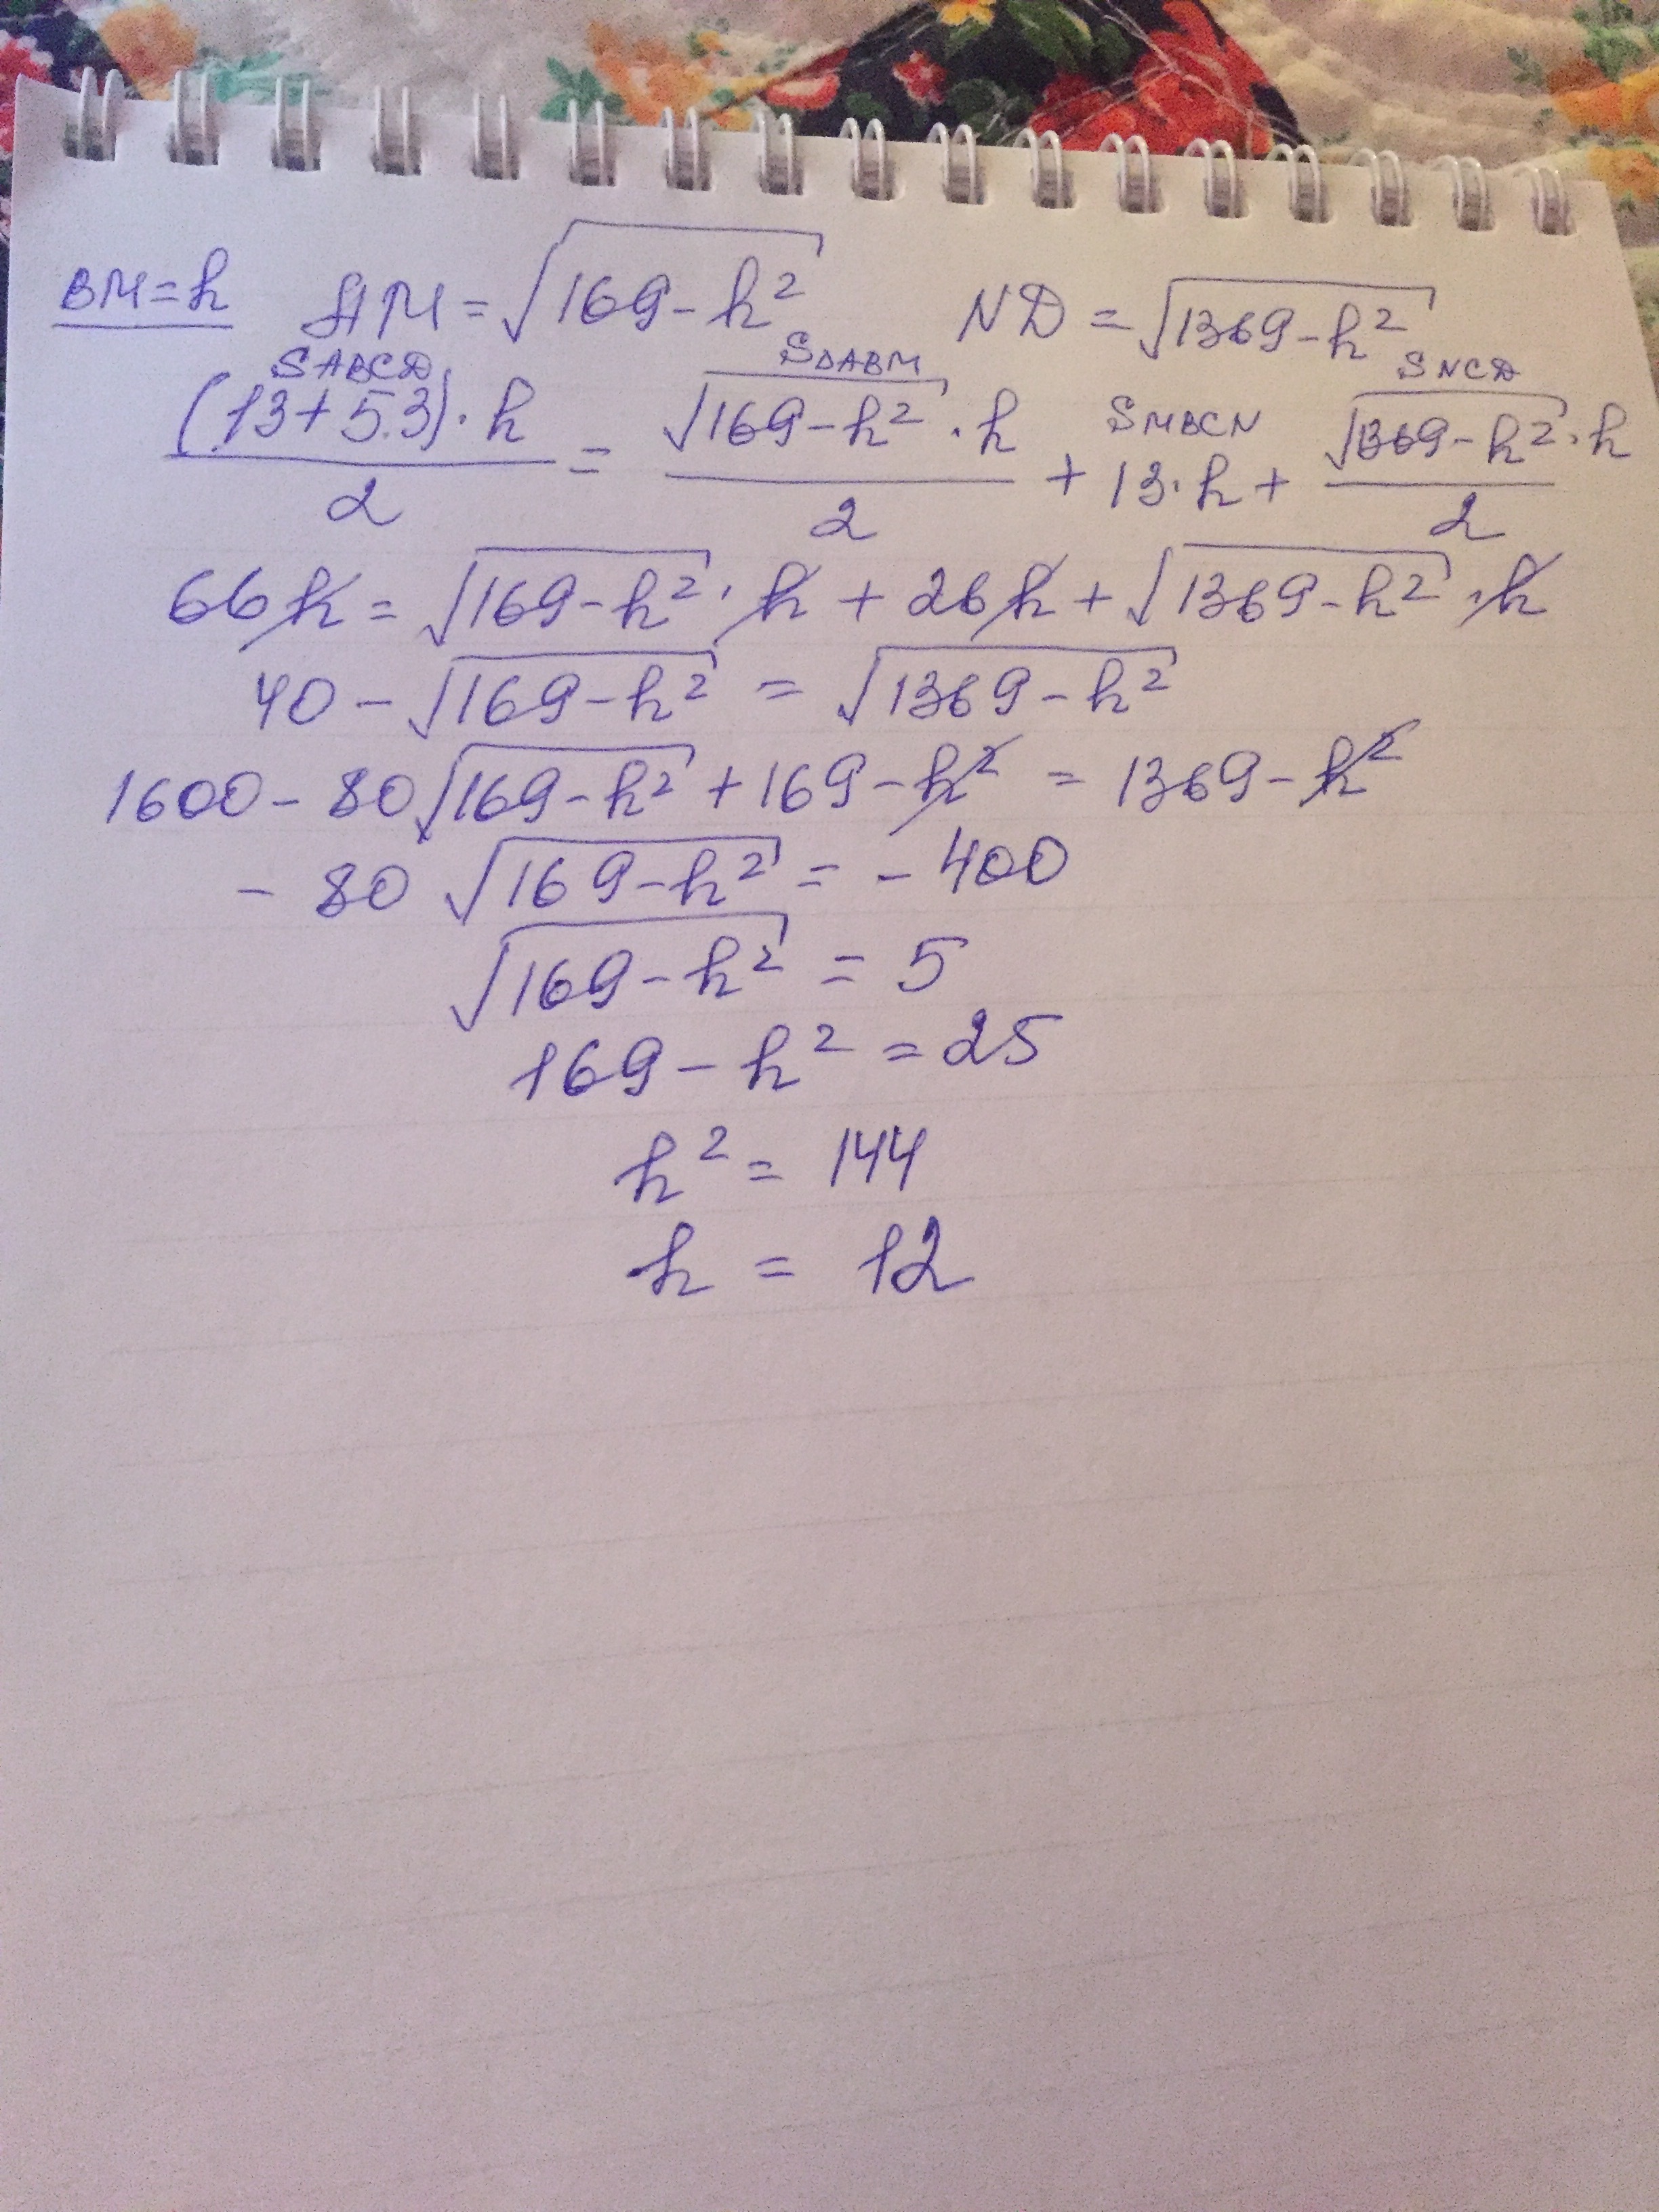 BM=h AM=√169-h² ND=√1369-h²
SABCD SΔABM SMBCN SNCD
(13+53)·h/2 = √169-h²·h/2 + 13·h + √1369-h²·h/2
66h = √169-h²·h + 26h + √1369-h²·h
40-√169-h² = √1369-h²
1600-80√169-h²+169-h² = 1369-h²
-80√169-h² = -400
√169-h² = 5
169-h² = 25
h² = 144
h = 12